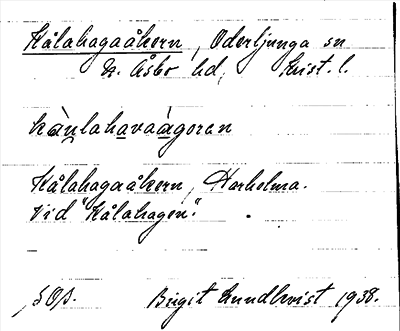 Kålahagaåkern, Oderljunga sn
N. Åsbo hd, Krist. l.
kàulahavaàgoren
Kålahagaåkern, Harhelma.
Vid "Kålahagen".
SOS. Birgit Lundkvist 1938.